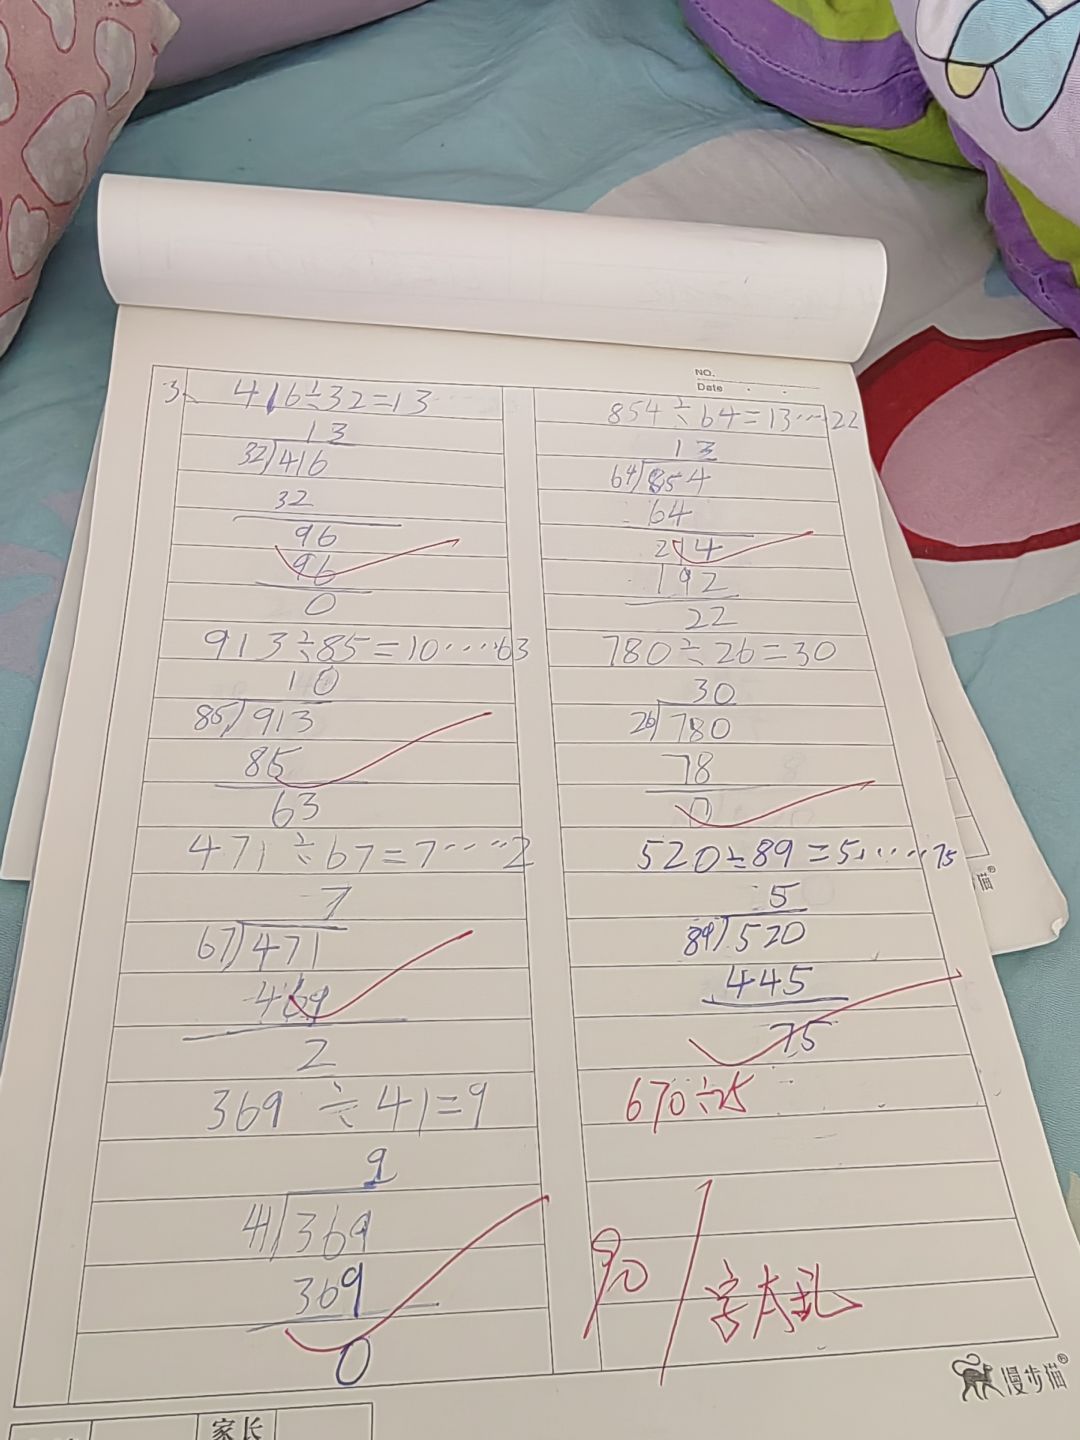 NO.
Date
3、 416÷32=13
13
32)416
32
96
96
0
913÷85=10……63
10
85)913
85
63
471÷67=7……2
7
67)471
469
2
369÷41=9
9
41)369
369
0
854÷64=13……22
13
64)854
64
214
192
22
780÷26=30
30
26)780
78
0
520÷89=5……75
5
89)520
445
75
670÷25
90
字太乱
漫步猫®
家长
猫®